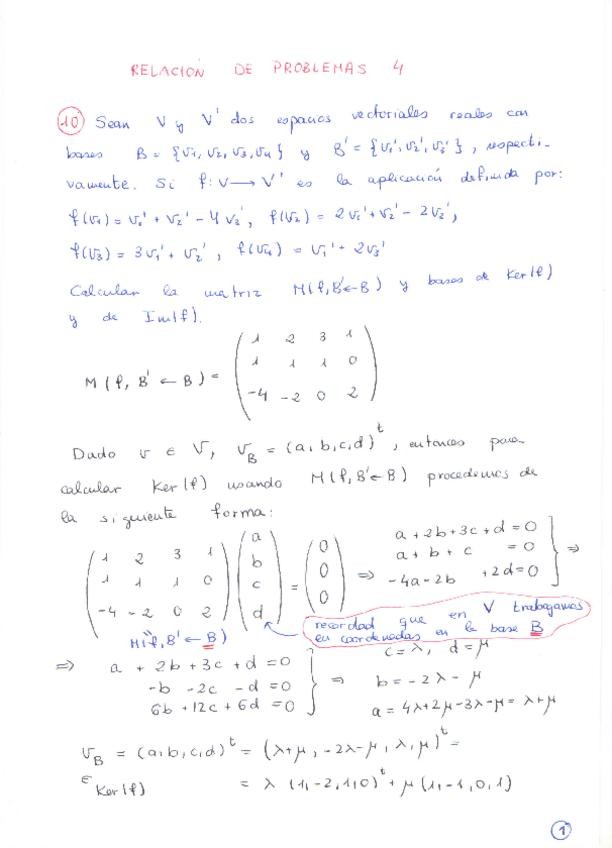 RELACIÓN DE PROBLEMAS 4
10 Sean V y V' dos espacios vectoriales reales con
bases B = {v1, v2, v3, v4} y B' = {v1', v2', v3'}, respecti-
vamente. Si f: V → V' es la aplicación definida por:
f(v1) = v1' + v2' - 4v3', f(v2) = 2v1' + v2' - 2v3',
f(v3) = 3v1' + v2', f(v4) = v1' + 2v3'
Calcular la matriz M(f, B'←B) y bases de Ker(f)
y de Im(f).
M(f, B' ← B) =
1 2 3 1
1 1 1 0
-4 -2 0 2
Dado v ∈ V, vB = (a, b, c, d)^t, entonces para
calcular Ker(f) usando M(f, B'←B) procedemos de
la siguiente forma:
1 2 3 1 a 0 a + 2b + 3c + d = 0
1 1 1 0 b = 0 ⇒ a + b + c = 0 ⇒
-4 -2 0 2 c 0 -4a - 2b + 2d = 0
d
M(f, B' ← B)
recordad que en V trabajamos
en coordenadas en la base B
⇒ a + 2b + 3c + d = 0 c = λ, d = μ
-b - 2c - d = 0 ⇒ b = -2λ - μ
6b + 12c + 6d = 0 a = 4λ + 2μ - 3λ - μ = λ + μ
vB = (a, b, c, d)^t = (λ+μ, -2λ-μ, λ, μ)^t =
∈ Ker(f) = λ (1, -2, 1, 0)^t + μ (1, -1, 0, 1)
1